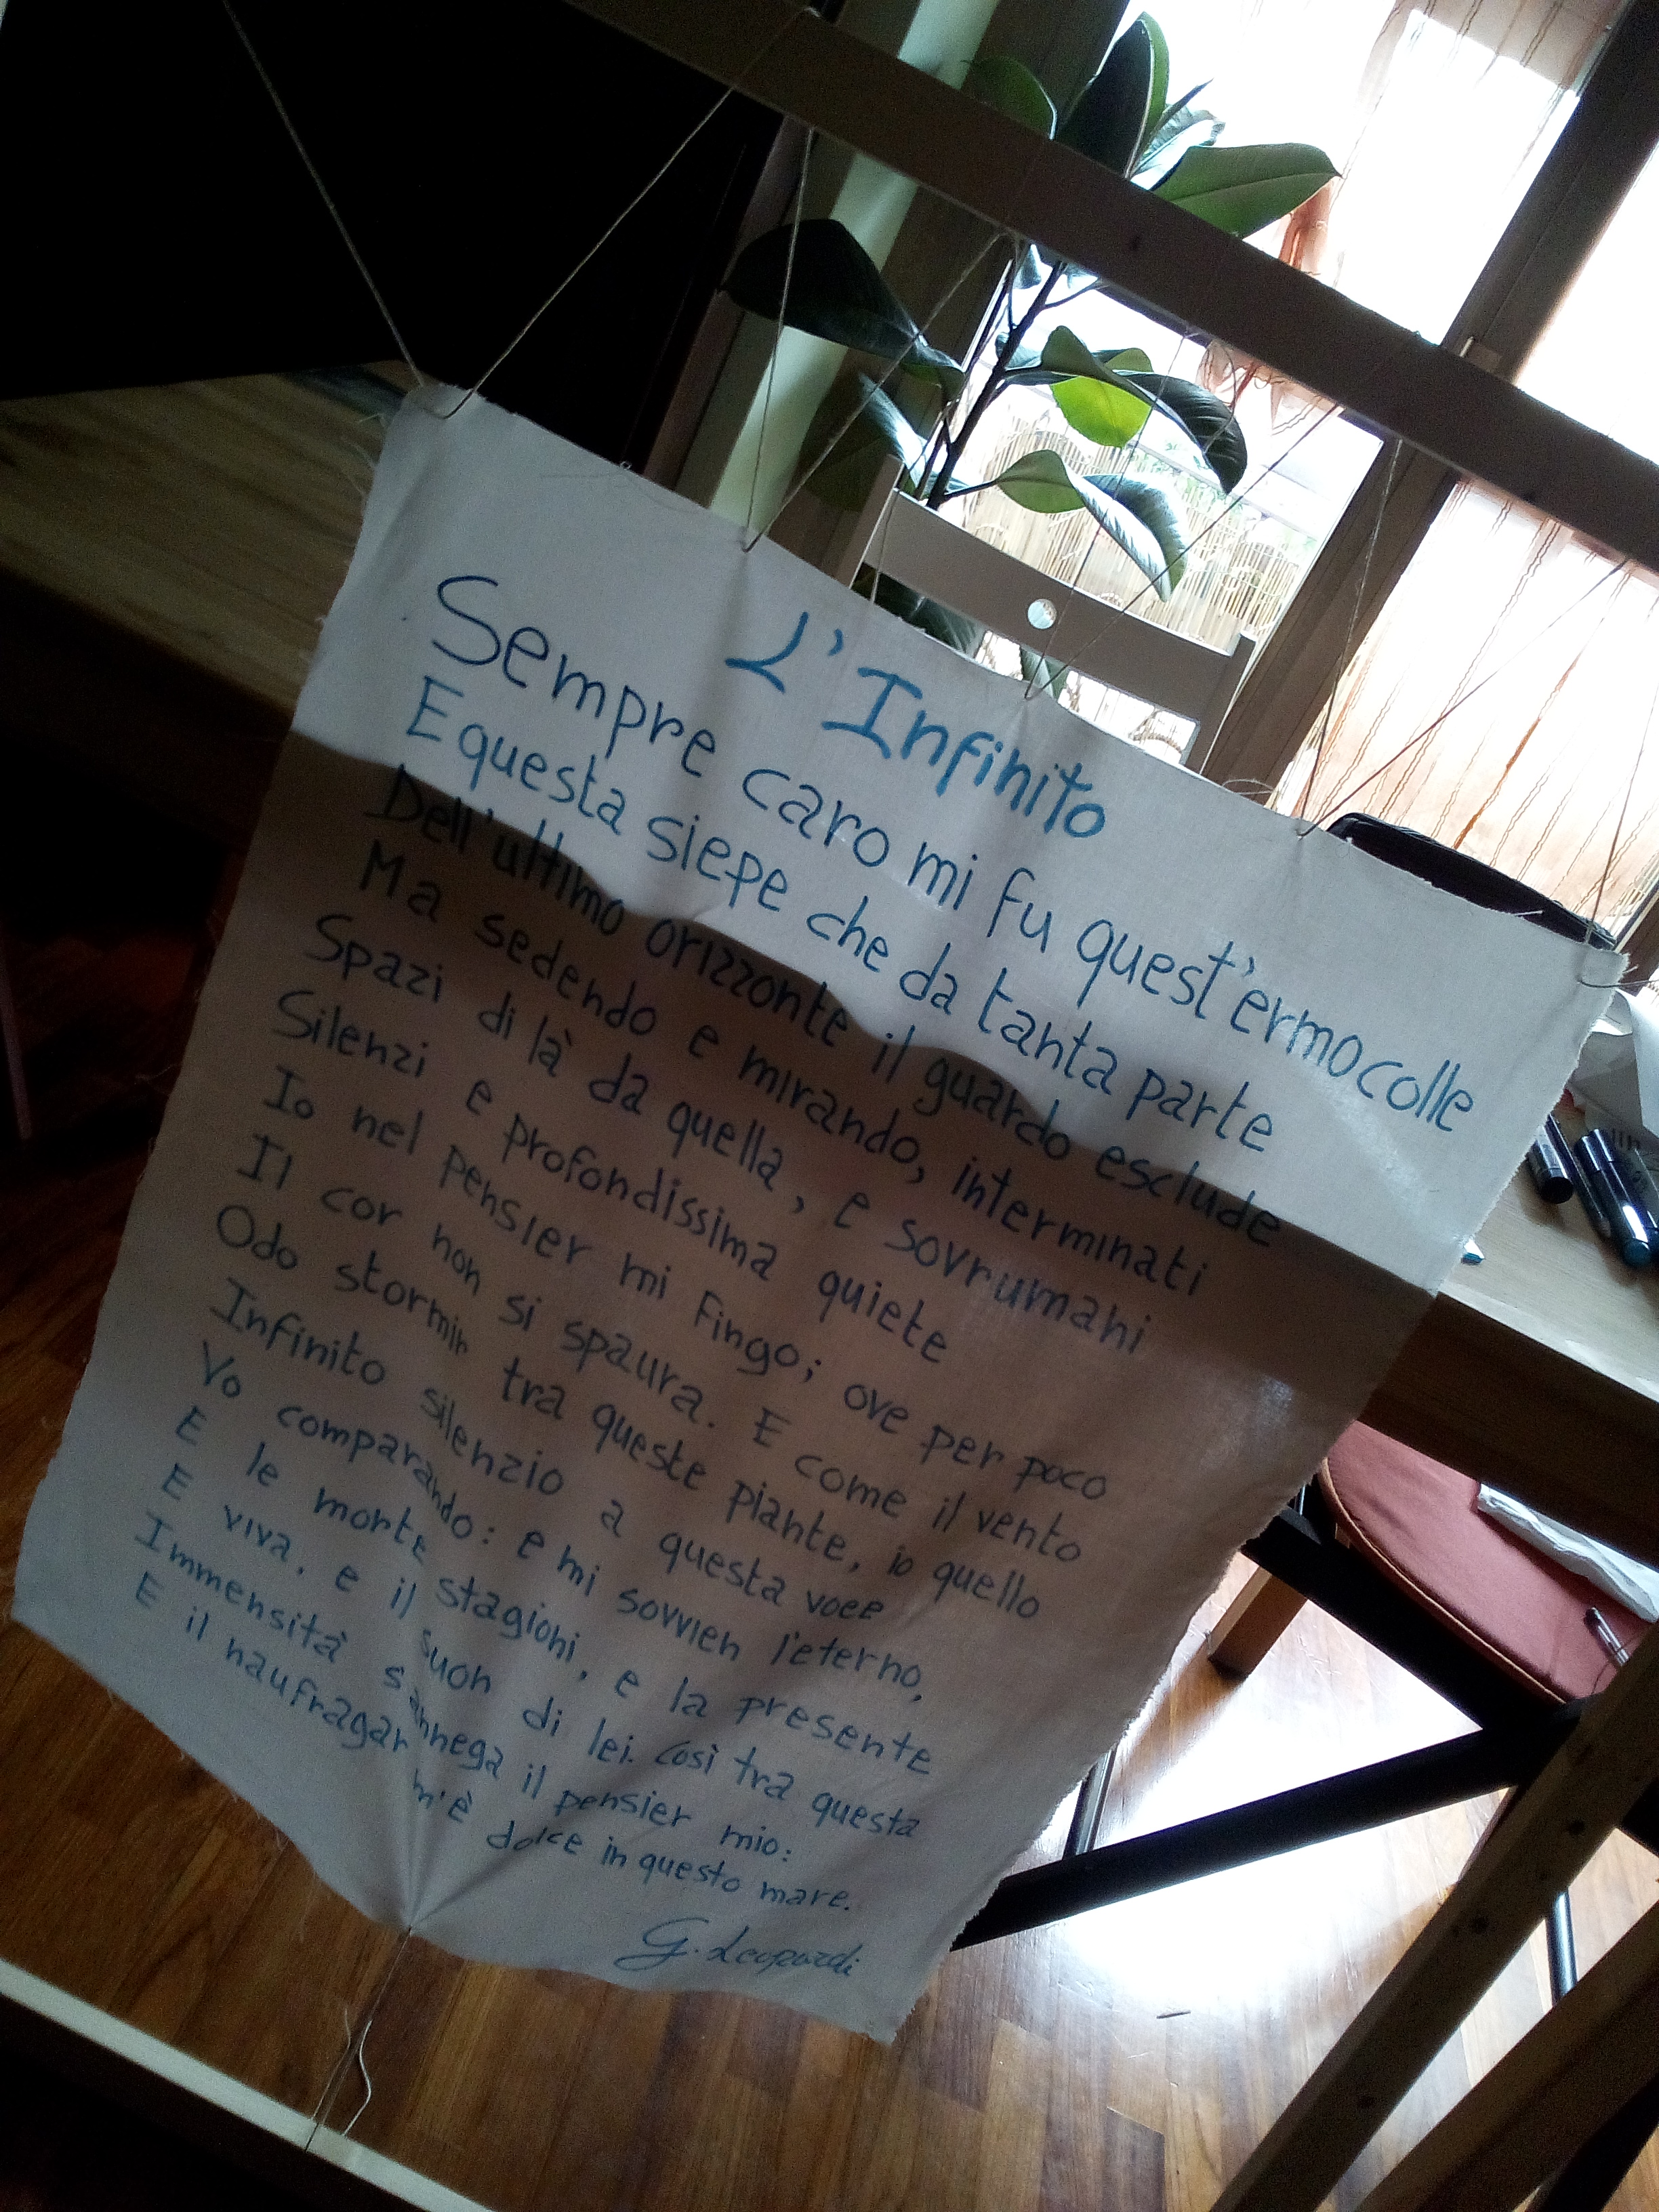 L'Infinito
Sempre caro mi fu quest'ermo colle
E questa siepe che da tanta parte
Dell'ultimo orizzonte il guardo esclude
Ma sedendo e mirando, interminati
Spazi di là da quella, e sovrumani
Silenzi e profondissima quiete
Io nel pensier mi fingo; ove per poco
Il cor non si spaura. E come il vento
Odo stormir tra queste piante, io quello
Infinito silenzio a questa voce
Vo comparando: e mi sovvien l'eterno,
E le morte stagioni, e la presente
E viva, e il suon di lei. Così tra questa
Immensità s'annega il pensier mio:
E il naufragar m'è dolce in questo mare.
G. Leopardi